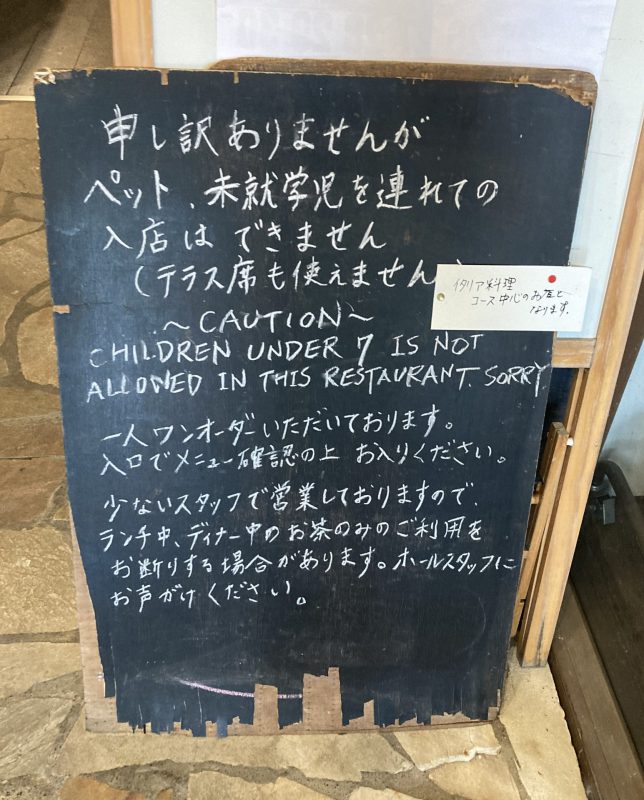 申し訳ありませんが
ペット、未就学児を連れての
入店は できません
(テラス席も使えません)
イタリア料理
コース中心のお店と
なります。
～CAUTION～
CHILDREN UNDER 7 IS NOT
ALLOWED IN THIS RESTAURANT. SORRY
一人ワンオーダーいただいております。
入口でメニュー確認の上 お入りください。
少ないスタッフで営業しておりますので、
ランチ中、ディナー中のお茶のみのご利用を
お断りする場合があります。ホールスタッフに
お声がけください。